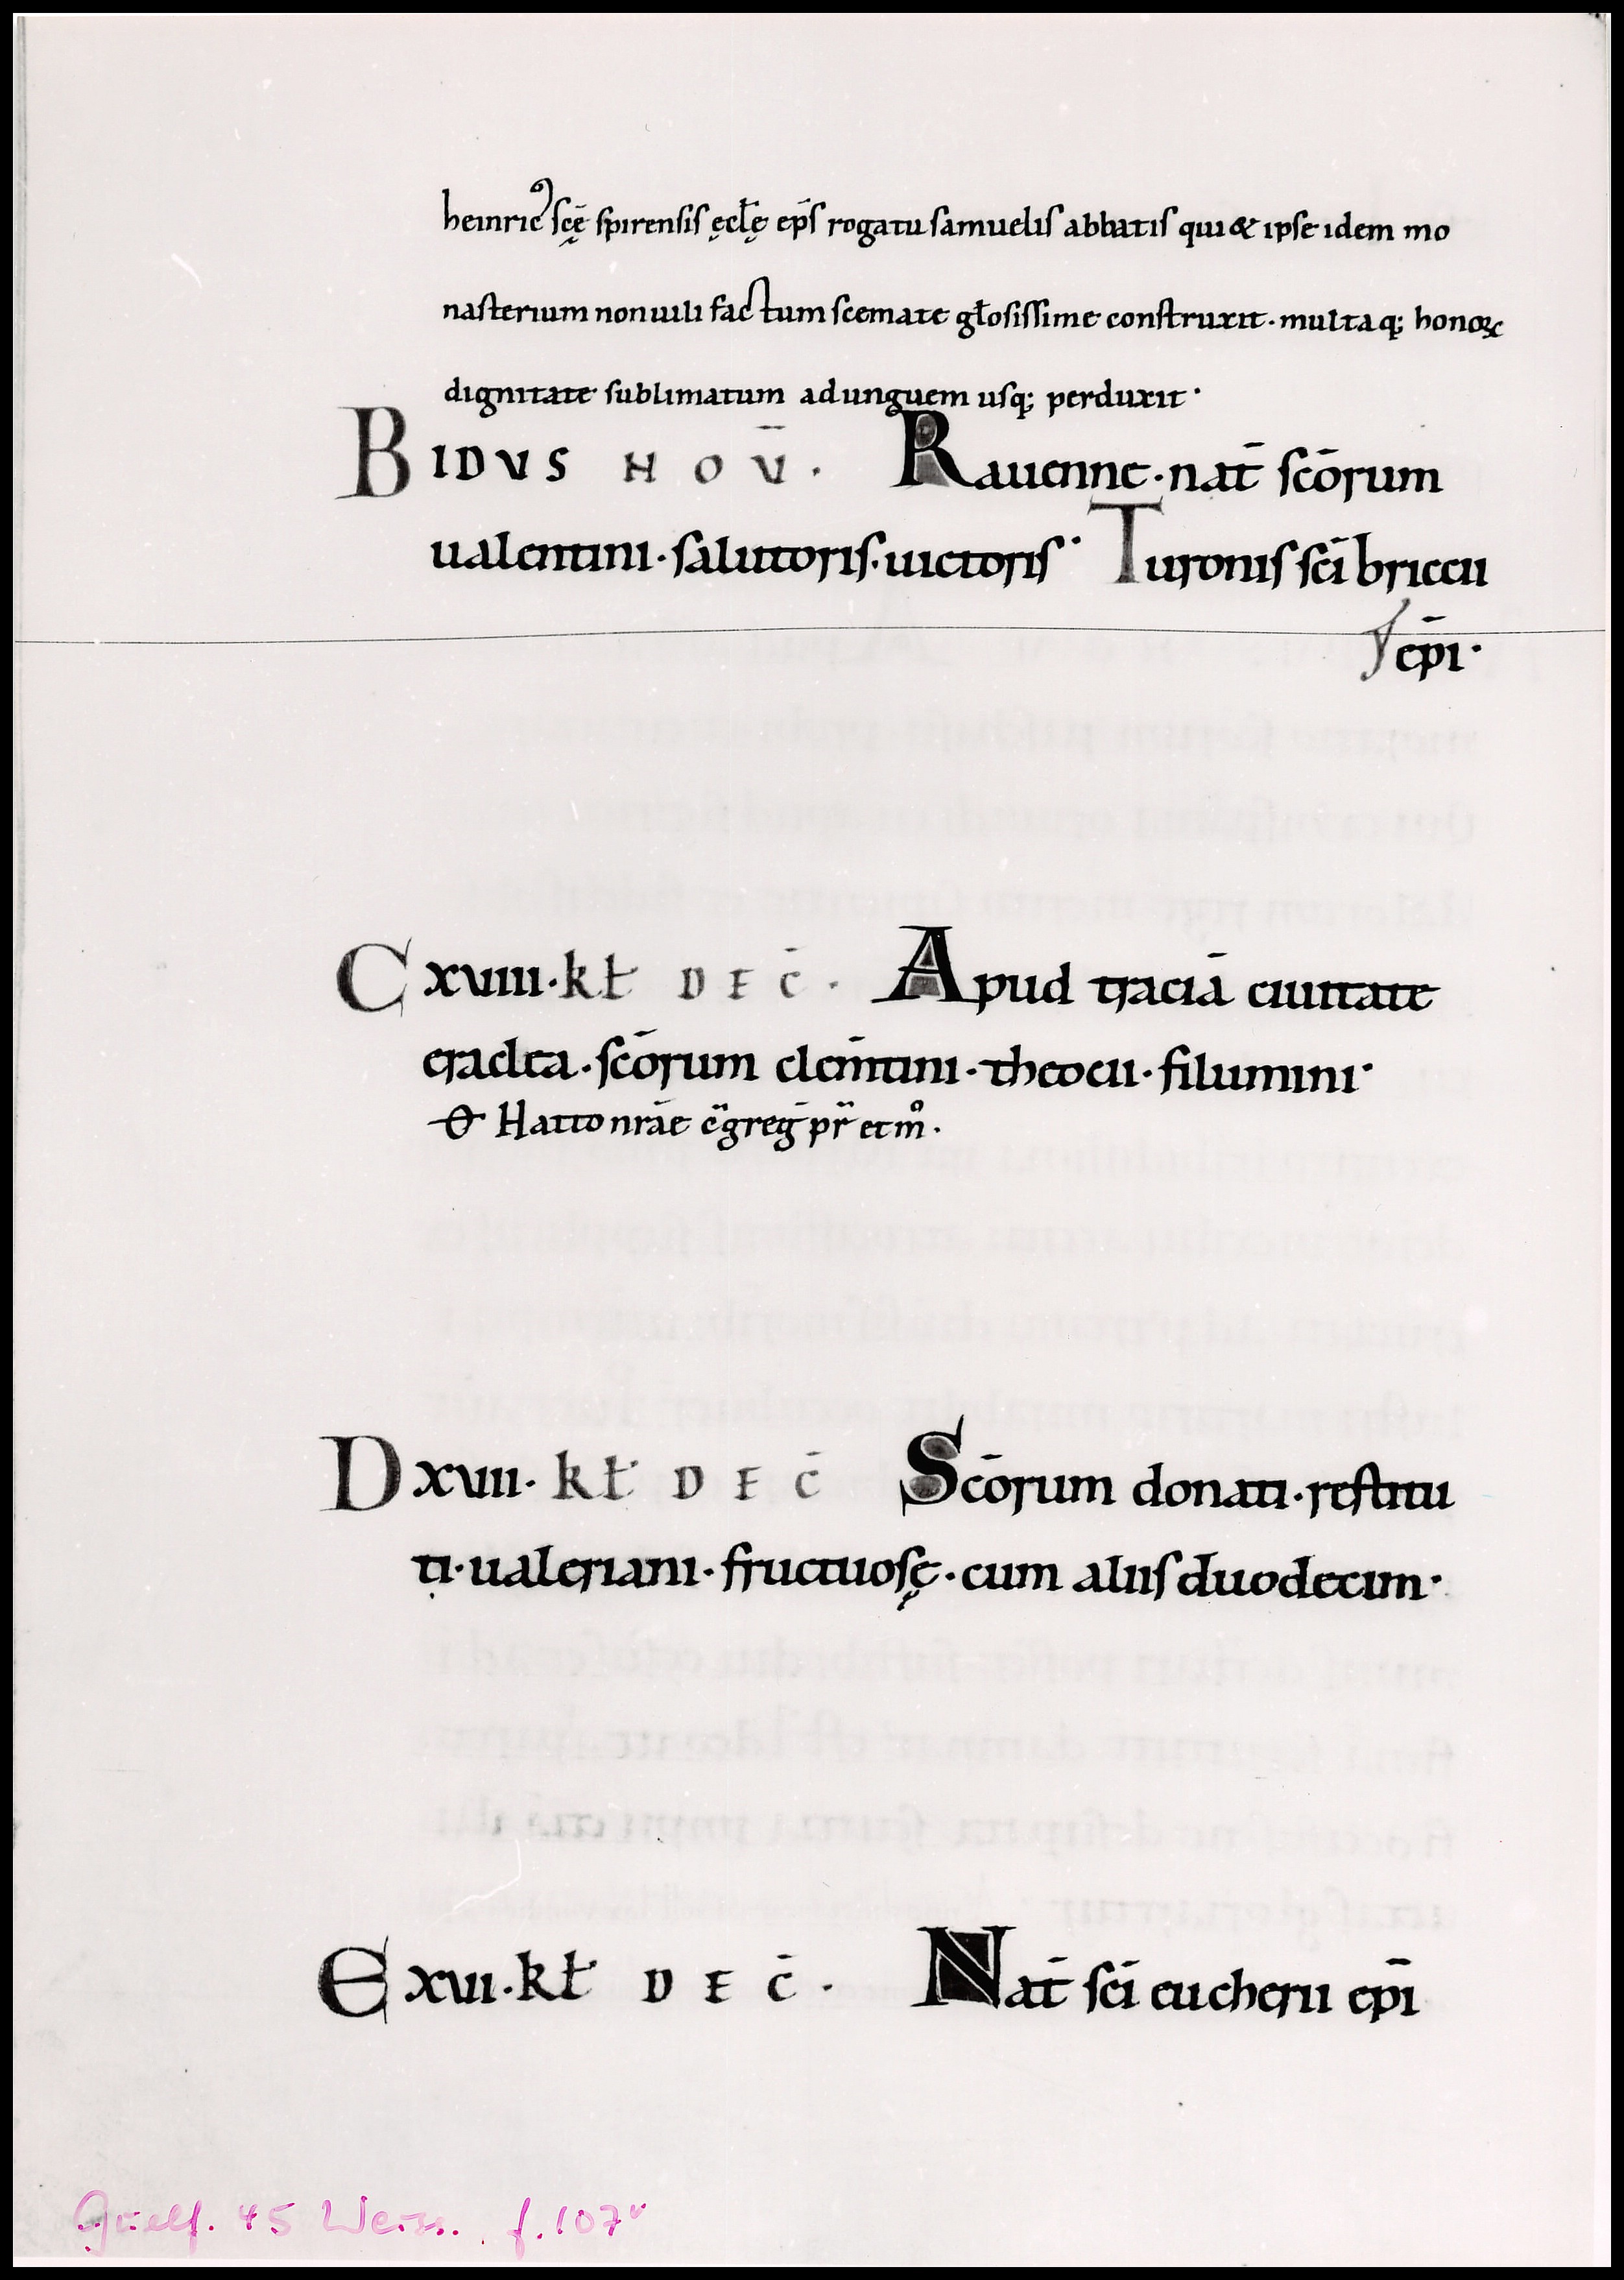 heinric᷒ scę̄ spirensis ęcłę ep̄s rogatu samuelis abbatis qui & ipse idem mo
nasterium non uili factum scemate głosissime construxit · multaq; honoꝝ
dignitate sublimatum ad unguem usq; perduxit ·
B IDVS NOV̄ · Rauenne · nat̄ scōrum
ualentini · salutoris · uictoris · Turonis sc̄i briccii
ep̄i ·
C xviii · kł DEC̄ · Apud traciā ciuitate
eraclea · scōrum clem̄tini · theoeii · filumini ·
Hatto nrāe c̄greḡ pr̄ et mͦ ·
D xvii · kł DEC̄ Scōrum donati · restitu
ti · ualeriani · fructuosę · cum aliis duodecim ·
E xvi · kł DEC̄ · Nat̄ sc̄i eucherii ep̄i
Guelf. 45 Weiss. f. 107v